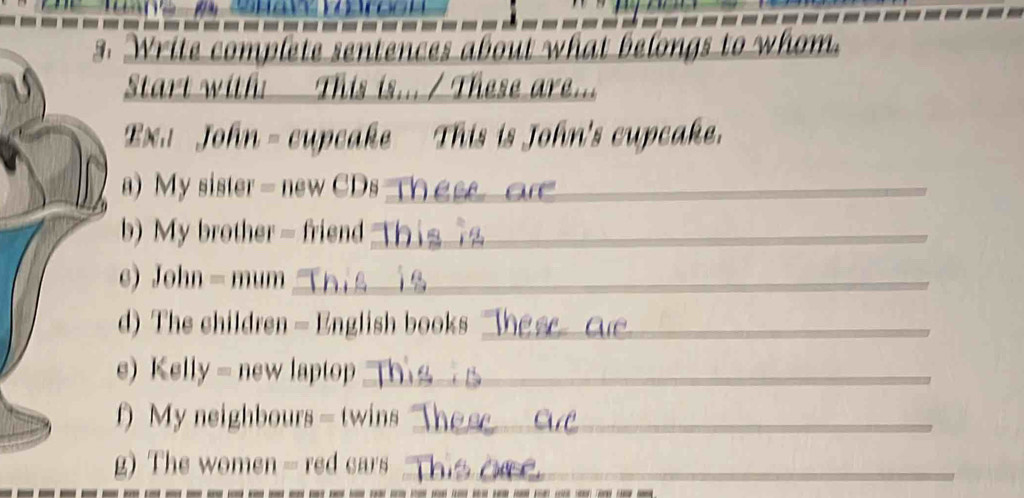 3. Write complete sentences about what belongs to whom.
Start with: This is... / These are...
Ex.: John - cupcake This is John's cupcake.
a) My sister - new CDs These are
b) My brother - friend This is
c) John - mum This is
d) The children - English books These are
e) Kelly - new laptop This is
f) My neighbours - twins These are
g) The women - red cars This are